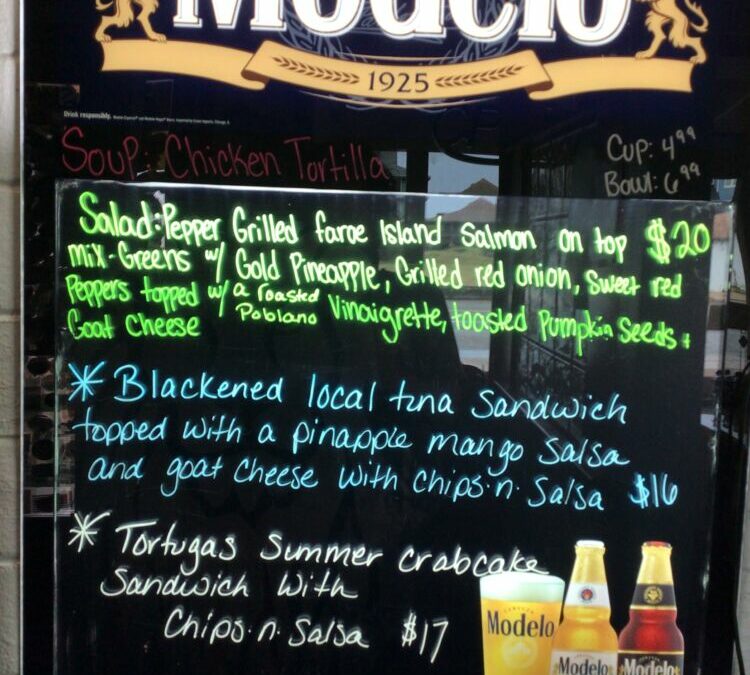 Modelo
1925
Drink responsibly.
Soup: Chicken Tortilla
Cup: 4.99
Bowl: 6.99
Salad: Pepper Grilled faroe Island Salmon on top $20
mix-Greens w/ Gold Pineapple, Grilled red onion, Sweet red
Peppers topped w/ a roasted Poblano Vinaigrette, toasted Pumpkin Seeds +
Goat Cheese
* Blackened local tuna Sandwich
topped with a pinapple mango Salsa
and goat cheese with Chips·n·Salsa $16
* Tortugas Summer crabcake
Sandwich with
Chips·n·Salsa $17
CERVEZA
Modelo
Modelo
Modelo